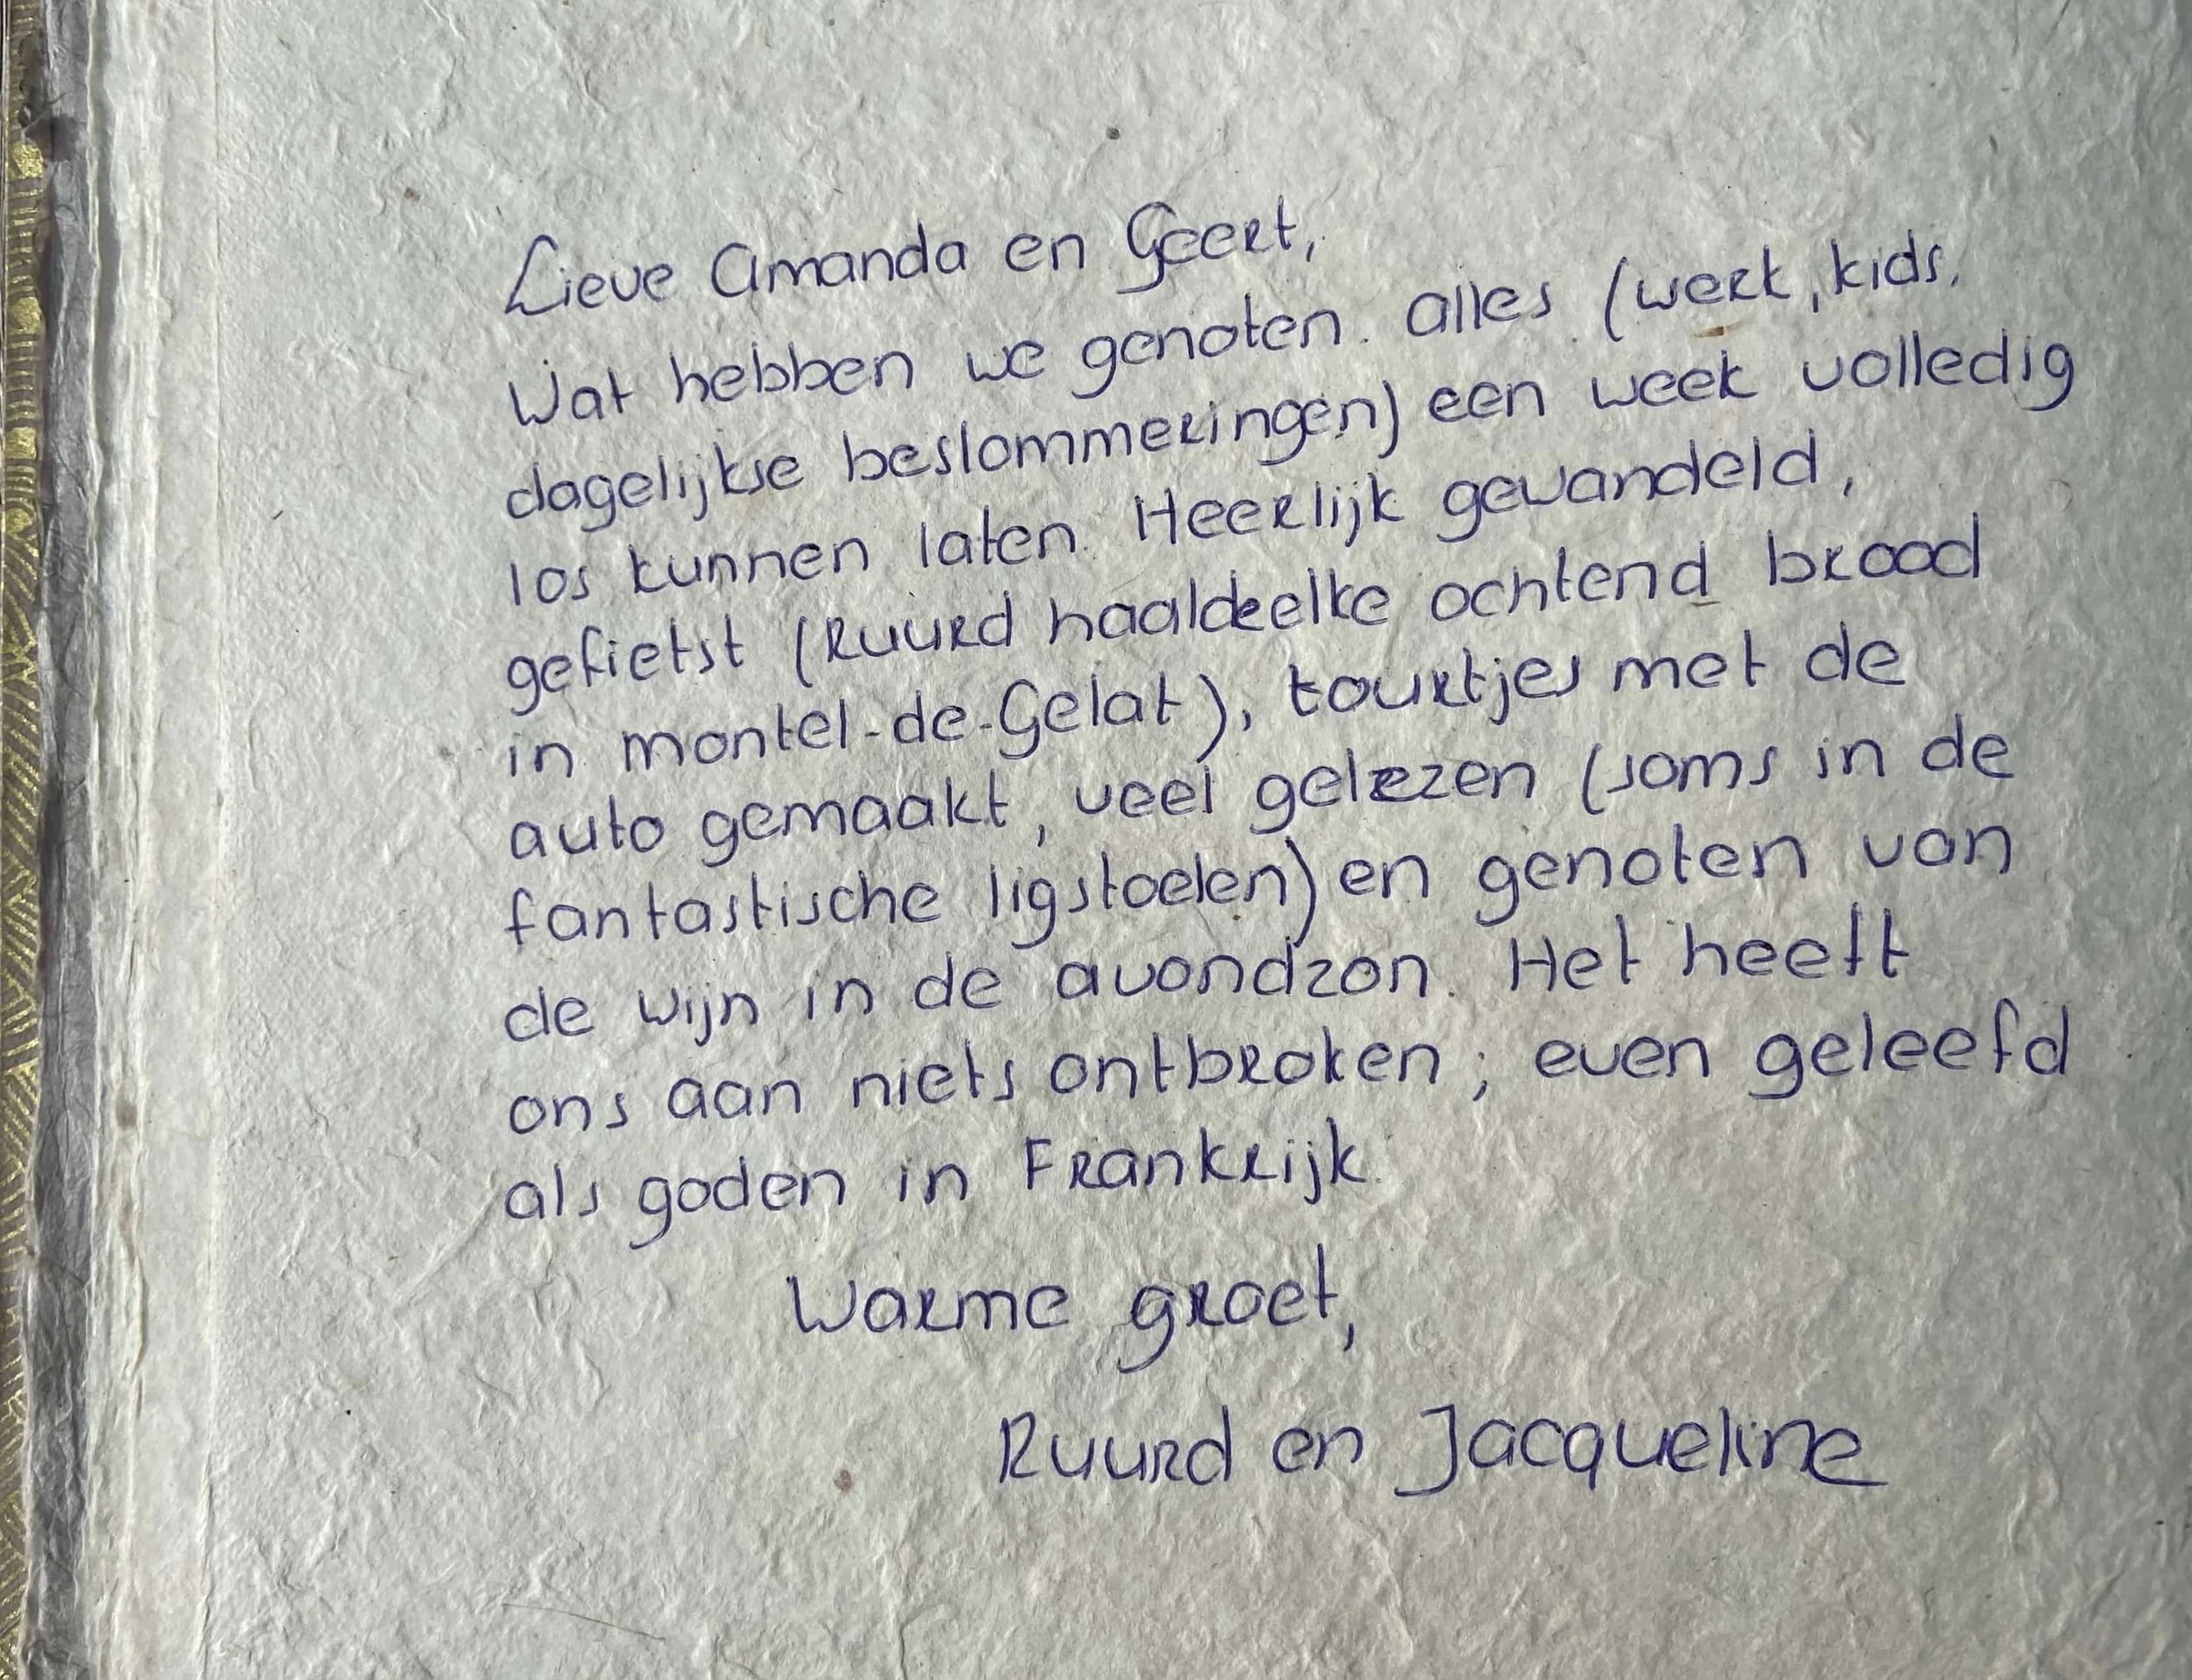 Lieve Amanda en Geert,
Wat hebben we genoten. Alles (werk, kids,
dagelijkse beslommeringen) een week volledig
los kunnen laten. Heerlijk gewandeld,
gefietst (Ruurd haalde elke ochtend brood
in Montel-de-Gelat), tourtjes met de
auto gemaakt, veel gelezen (soms in de
fantastische ligstoelen) en genoten van
de wijn in de avondzon. Het heeft
ons aan niets ontbroken; even geleefd
als goden in Frankrijk.
Warme groet,
Ruurd en Jacqueline